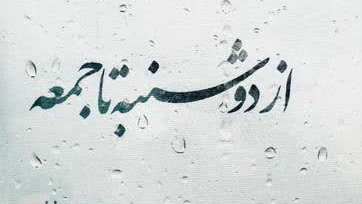 از دوشنبه تا جمعه